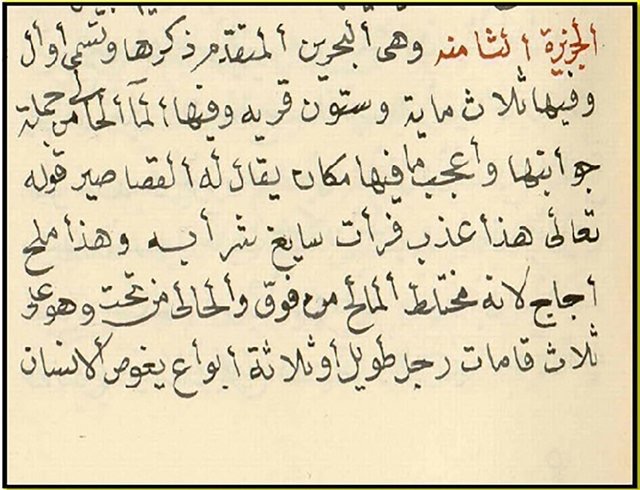 الجزيرة الثامنه وهى البحرين المتقدم ذكرها وتسمى أوأل
وفيها ثلاث ماية وستون قريه وفيها ألمآ ألحالى من جملة
جوأبنها وأعجب ما فيها مكان يقال له ألقصاصير قوله
تعالى هذا عذب فرأت سايغ شرأبه وهذأ ملح
أجاج لانه مختلط ألمالح من فوق وألحالى من تحت وهو على
ثلاث قامات رجل طويل أو ثلاثة أبوأع يغوص ألانسان